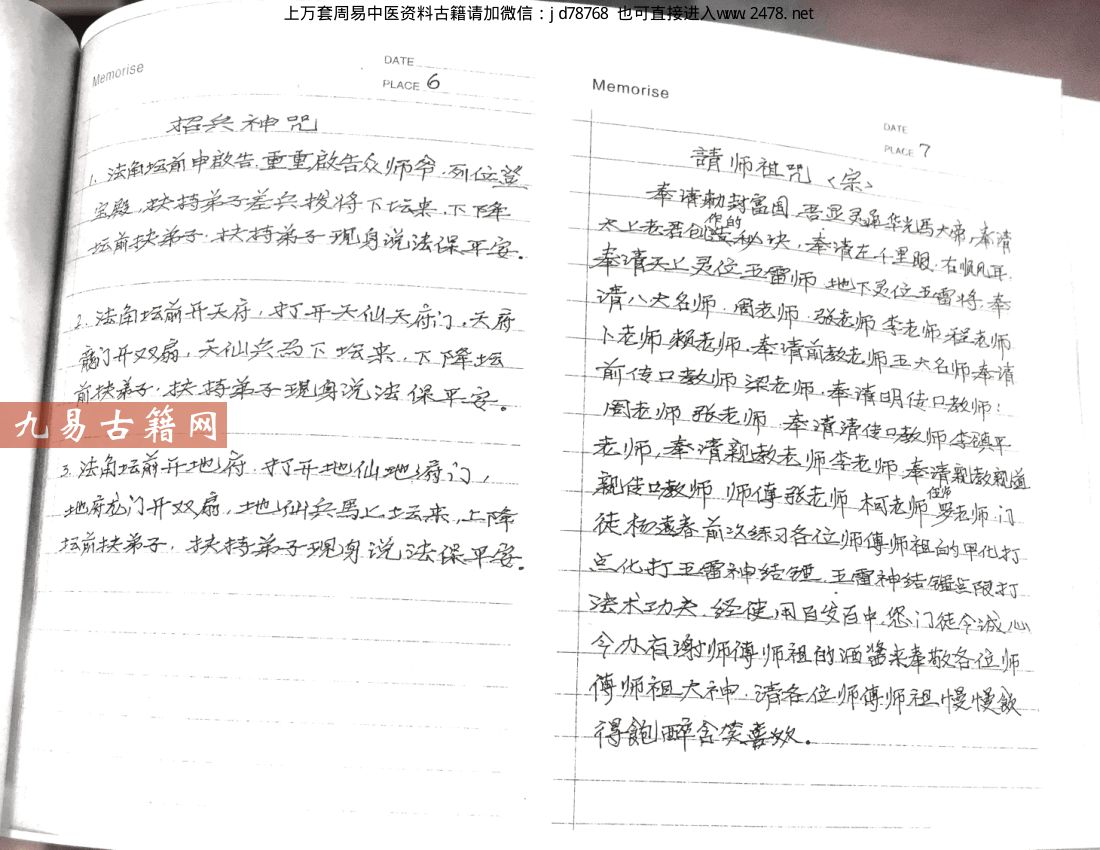 上万套周易中医资料古籍请加微信：jd78768 也可直接进入www.2478.net
Memorise
DATE
PLACE 6
招兵神咒
1. 法角坛前申啟告，重重啟告众师爷，列位登
宝殿，扶持弟子差兵拨将下坛来，下下降
坛前扶弟子，扶持弟子现身说法保平安。
2. 法角坛前开天府，打开天仙天府门，天府
龍门开双扇，天仙兵马下坛来，下下降坛
前扶弟子，扶持弟子现身说法保平安。
九易古籍网
3. 法角坛前开地府，打开地仙地府门，
地府龙门开双扇，地仙兵馬上坛来，上降
坛前扶弟子，扶持弟子现身说法保平安。
Memorise
DATE
PLACE 7
請师祖咒〈宗〉
奉请勅封富国，显灵通华光馬大帝，奉请
太上老君创造作的秘诀，奉请左千里眼，右顺风耳，
奉请天上灵位五雷师，地下灵位五雷将，奉
请八大名师，周老师，张老师，李老师，程老师
卜老师，赖老师，奉请前教老师五大名师，奉请
前传口教师梁老师，奉请明传口教师：
周老师，张老师，奉请清传口教师李镇平
老师，奉请親教老师李老师，奉请親教親道
親传口教师，师傅张老师，柯老师，罗老师，门
徒杨 春前次练习各位师傅师祖的甲化打
点化打五雷神结 ，五雷神结 点限打
法术功夫，经使用百发百中，您门徒今诚心
今办有謝师傅师祖的酒酱来奉敬各位师
傅师祖大神，请各位师傅师祖慢慢飲
得飽醉含笑喜欢。